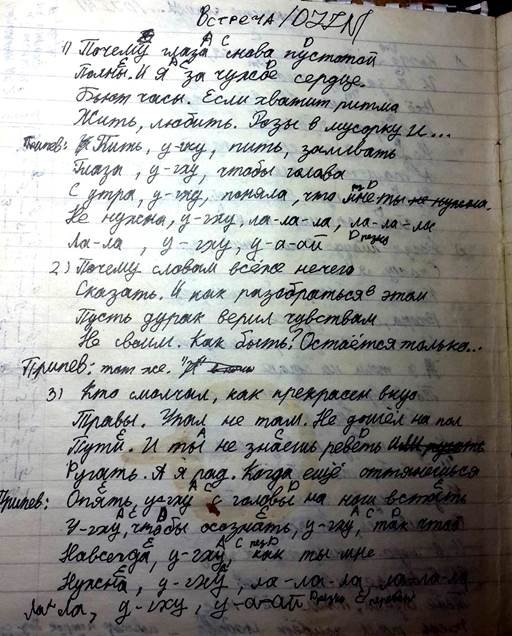 Встреча /ОЛЛИ/
1) Почему глаза снова пустотой
Полны. И я за чужое сердце.
Бьют часы. Если хватит ритма
Жить, любить. Розы в мусорку и...
Припев: Пить, у-гху, пить, заливать
Глаза, у-гху, чтобы голова
С утра, у-гху, поняла, что мне ты не нужна.
Не нужна, у-гху, ла-ла-ла, ла-ла-ла
Ла-ла, у-гху, у-а-ай
2) Почему словам всё же нечего
Сказать. И как разобраться в этом
Пусть дурак верил чувствам
Не своим. Как быть? Остаётся только...
Припев: тот же.
3) Кто смолчил, как прекрасен вкус
Травы. Упал не там. Не дошёл на пол
Пути. И ты не знаешь реветь или ругать
Ругать. А я рад. Когда ещё оттянешься
Припев: Опять, у-гху с головы на ноги встать
У-гху, чтобы осознать, у-гху, так что
Навсегда, у-гху, как ты мне
Нужна, у-гху, ла-ла-ла, ла-ла-ла
Ла-ла, у-гху, у-а-ай